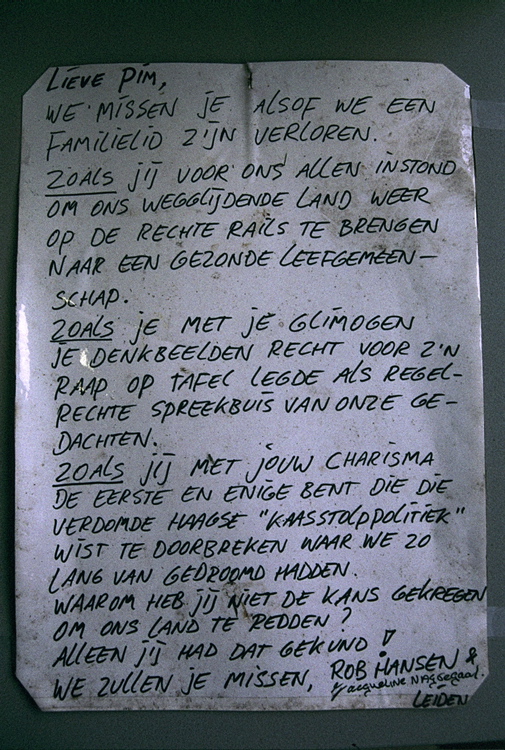 LIEVE PIM,
WE MISSEN JE ALSOF WE EEN
FAMILIELID Z'IJN VERLOREN.
ZOALS JIJ VOOR ONS ALLEN INSTOND
OM ONS WEGGLIJDENDE LAND WEER
OP DE RECHTE RAILS TE BRENGEN
NAAR EEN GEZONDE LEEFGEMEEN-
SCHAP.
ZOALS JE MET JE GLIMOGEN
JE DENKBEELDEN RECHT VOOR Z'N
RAAP OP TAFEL LEGDE ALS REGEL-
RECHTE SPREEKBUIS VAN ONZE GE-
DACHTEN.
ZOALS JIJ MET JOUW CHARISMA
DE EERSTE EN ENIGE BENT DIE DIE
VERDOMDE HAAGSE "KAASSTOLPPOLITIEK"
WIST TE DOORBREKEN WAAR WE ZO
LANG VAN GEDROOMD HADDEN.
WAAROM HEB JIJ NIET DE KANS GEKREGEN
OM ONS LAND TE REDDEN?
ALLEEN JIJ HAD DAT GEKUND!
WE ZULLEN JE MISSEN, ROB HANSEN &
Jacqueline
LEIDEN